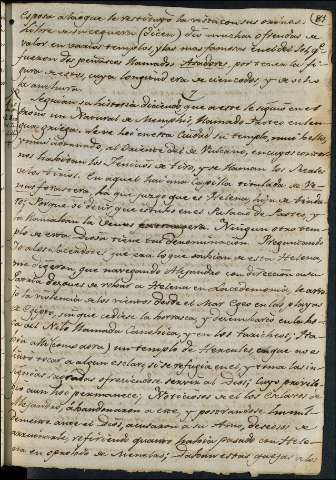 Esposa a la que le restituyó la vista con sus orines. 81
libre de su ceguera (dicen) dio muchas ofrendas de
valor en varios templos, y las mas famosas en el del Sol, q.e
fueron dos peñascos llamados por tener la fi
gura de estos, cuya longitud era de cien codos, y de ocho
la anchura.
Seguian su historia diciendo que a este le siguió en el
trono un Natural de Memphis, llamado en len
gua griega. Se ve hoi en esta Ciudad su templo, mui bello
y mui adornado, al Oriente del de Vulcano, en cuyos contor
nos habitaban los Fenicios de tiro, y se llaman los Reales
de los tirios. En aquel hai una Capilla titulada de Ve-
nus forastera, la que juzgo que es Helena, hija de Tinda-
ro; Porque se dice que estubo en el Palacio de y
la llamaban la Venus extrangera. Ningun otro tem-
plo de esta Diosa tiene tal denominacion. Preguntando
Yo a los Sacerdotes que era lo que sabian de esta Helena,
me dijeron que navegando Alejandro con direccion a su
Patria despues de robar a Helena en Lacedemonia, le arro-
jó la violencia de los vientos desde el Mar Egeo en las playas
de Egipto, sin que cediese la borrasca, y desembarcó en la bo-
ca del Nilo llamada Canobica, y en las taricheas; Ha-
bia alli (como aora) un templo de Hercules, en que no es
licito tocar a algun esclavo si se refugia en el, y toma las in-
signias sagradas ofreciendose servir al Dios; cuyo privile-
gio aun hoi permanece; Noticiosos de el los Esclavos de
Alejandro, abandonaron a este, y postrandose humil-
demente ante el Dios, acusaron a su Amo, deseosos de
arruinarle, refiriendo quanto habia pasado con Hele-
na en oprobio de Menelao; Daban estas quejas a los